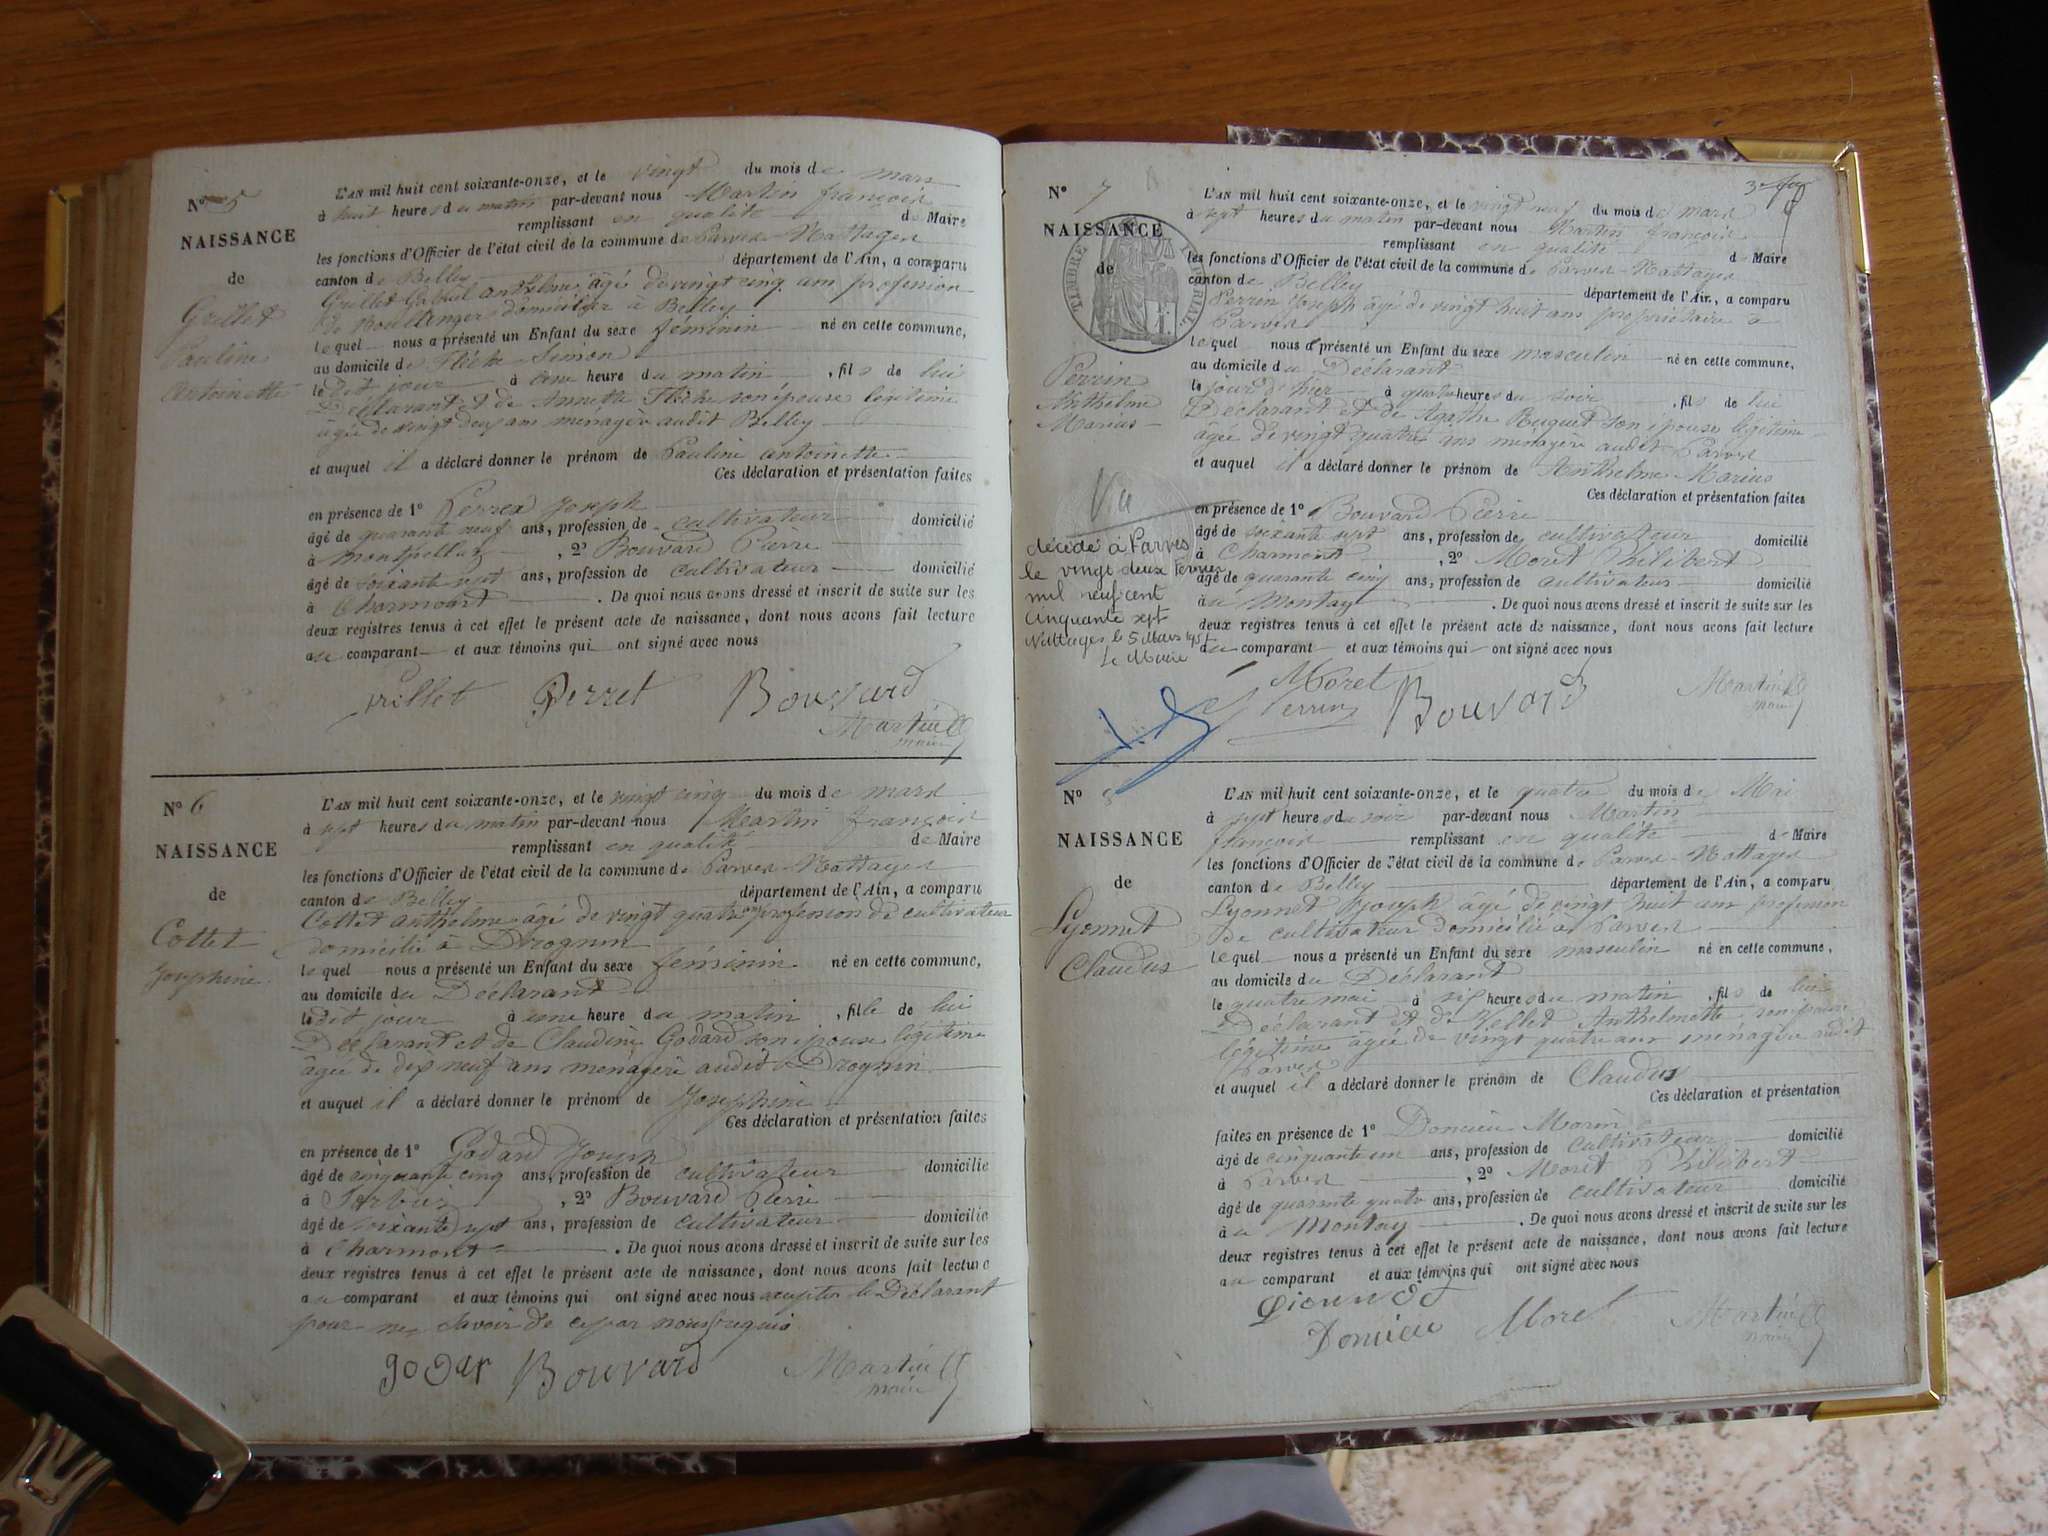 N° 5
NAISSANCE
de
Grillet
Pauline
Antoinette
L'AN mil huit cent soixante-onze, et le vingt du mois de mars
à huit heures du matin par-devant nous Martin françois
remplissant en qualité de Maire
les fonctions d'Officier de l'état civil de la commune de Parves-Nattages
canton de Belley département de l'Ain, a comparu
Grillet Gabriel anthelme âgé de vingt cinq ans profession
de Boullenger domicilier à Belley
lequel nous a présenté un Enfant du sexe féminin né en cette commune,
au domicile de Simon
le dit jour à une heure du matin, fils de lui
Déclarant et de Annette son épouse légitime
âgée de vingt deux ans ménagère audit Belley
et auquel il a déclaré donner le prénom de Pauline antoinette
Ces déclaration et présentation faites
en présence de 1° Perret Joseph
âgé de quarante neuf ans, profession de cultivateur domicilié
à , 2° Bouvard Pierre
âgé de soixante sept ans, profession de cultivateur domicilié
à Charmont. De quoi nous avons dressé et inscrit de suite sur les
deux registres tenus à cet effet le présent acte de naissance, dont nous avons fait lecture
au comparant et aux témoins qui ont signé avec nous
Grillet Perret Bouvard
Martin
maire
N° 6
NAISSANCE
de
Cottet
Josephine
L'AN mil huit cent soixante-onze, et le vingt cinq du mois de mars
à sept heures du matin par-devant nous Martin françois
remplissant en qualité de Maire
les fonctions d'Officier de l'état civil de la commune de Parves-Nattages
canton de Belley département de l'Ain, a comparu
Cottet anthelme âgé de vingt quatre ans profession de cultivateur
domicilié à Drognin
lequel nous a présenté un Enfant du sexe féminin né en cette commune,
au domicile du Déclarant
le dit jour à une heure du matin, fille de lui
Déclarant et de Claudine Godard son épouse légitime
âgée de dix neuf ans ménagère audit Drognin
et auquel il a déclaré donner le prénom de Josephine
Ces déclaration et présentation faites
en présence de 1° Godard Joseph
âgé de cinquante cinq ans, profession de cultivateur domicilié
à , 2° Bouvard Pierre
âgé de soixante sept ans, profession de cultivateur domicilié
à Charmont. De quoi nous avons dressé et inscrit de suite sur les
deux registres tenus à cet effet le présent acte de naissance, dont nous avons fait lecture
au comparant et aux témoins qui ont signé avec nous excepter le Déclarant
pour ne savoir de ce par nous requis
Bouvard Martin
maire
N° 7
NAISSANCE
de
TIMBRE IMPERIAL
Perrin
Anthelme
Marius
Vu
décédé à Parves
le vingt deux février
mil neuf cent
cinquante sept
Nattages le 5 Mars 1957
Le Maire
L'AN mil huit cent soixante-onze, et le vingt neuf du mois de mars
à sept heures du matin par-devant nous Martin françois
remplissant en qualité de Maire
les fonctions d'Officier de l'état civil de la commune de Parves-Nattages
canton de Belley département de l'Ain, a comparu
Perrin Joseph âgé de vingt huit ans propriétaire à
Parves
lequel nous a présenté un Enfant du sexe masculin né en cette commune,
au domicile du Déclarant
le jour de hier à quatre heures du soir, fils de lui
Déclarant et de Agathe Huguet son épouse légitime
âgée de vingt quatre ans ménagère audit Parves
et auquel il a déclaré donner le prénom de Anthelme Marius
Ces déclaration et présentation faites
en présence de 1° Bouvard Pierre
âgé de soixante sept ans, profession de cultivateur domicilié
à Charmont, 2° Moret Philibert
âgé de quarante cinq ans, profession de cultivateur domicilié
à au Montay. De quoi nous avons dressé et inscrit de suite sur les
deux registres tenus à cet effet le présent acte de naissance, dont nous avons fait lecture
au comparant et aux témoins qui ont signé avec nous
Moret
Perrin Bouvard Martin
maire
N° 8
NAISSANCE
de
Lyonnet
Claudus
L'AN mil huit cent soixante-onze, et le quatre du mois de Mai
à sept heures du soir par-devant nous Martin
françois remplissant en qualité de Maire
les fonctions d'Officier de l'état civil de la commune de Parves-Nattages
canton de Belley département de l'Ain, a comparu
Lyonnet Joseph âgé de vingt huit ans profession
de cultivateur domicilié à Parves
lequel nous a présenté un Enfant du sexe masculin né en cette commune,
au domicile du Déclarant
le quatre mai à six heures du matin, fils de lui
Déclarant et de Vellet Anthelmette son épouse
légitime âgée de vingt quatre ans ménagère audit
Parves
et auquel il a déclaré donner le prénom de Claudus
Ces déclaration et présentation
faites en présence de 1° Doncieu Marin
âgé de cinquante un ans, profession de cultivateur domicilié
à Parves, 2° Moret Philibert
âgé de quarante quatre ans, profession de cultivateur domicilié
à au Montay. De quoi nous avons dressé et inscrit de suite sur les
deux registres tenus à cet effet le présent acte de naissance, dont nous avons fait lecture
au comparant et aux témoins qui ont signé avec nous
Doncieu Moret Martin
maire